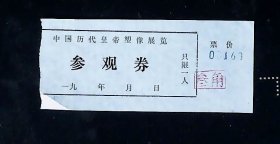 中国历代皇帝塑像展览
参观券
一九　年　月　日
只限一人
票价
叁角